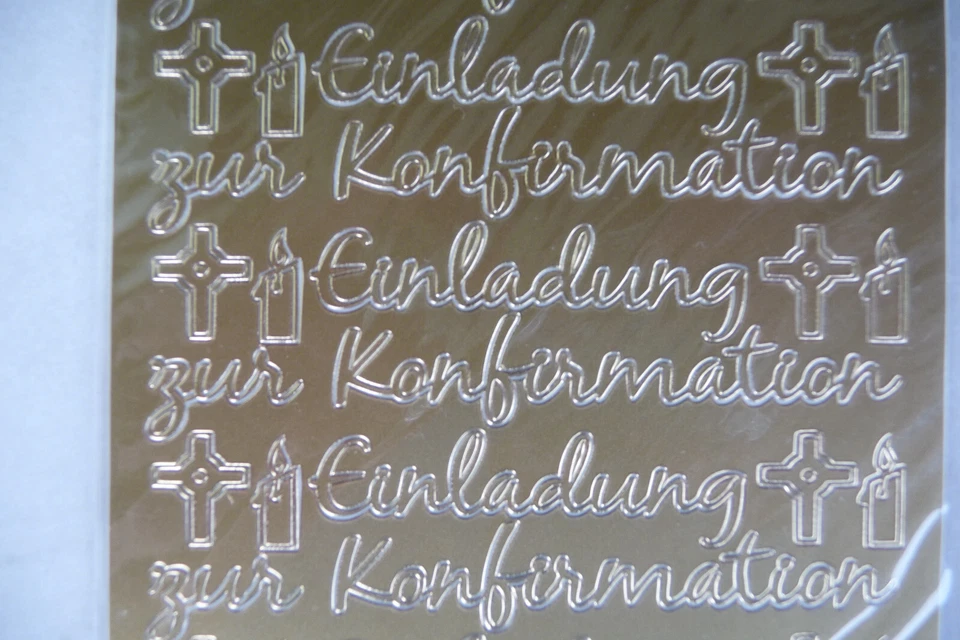 Einladung
zur Konfirmation
Einladung
zur Konfirmation
Einladung
zur Konfirmation